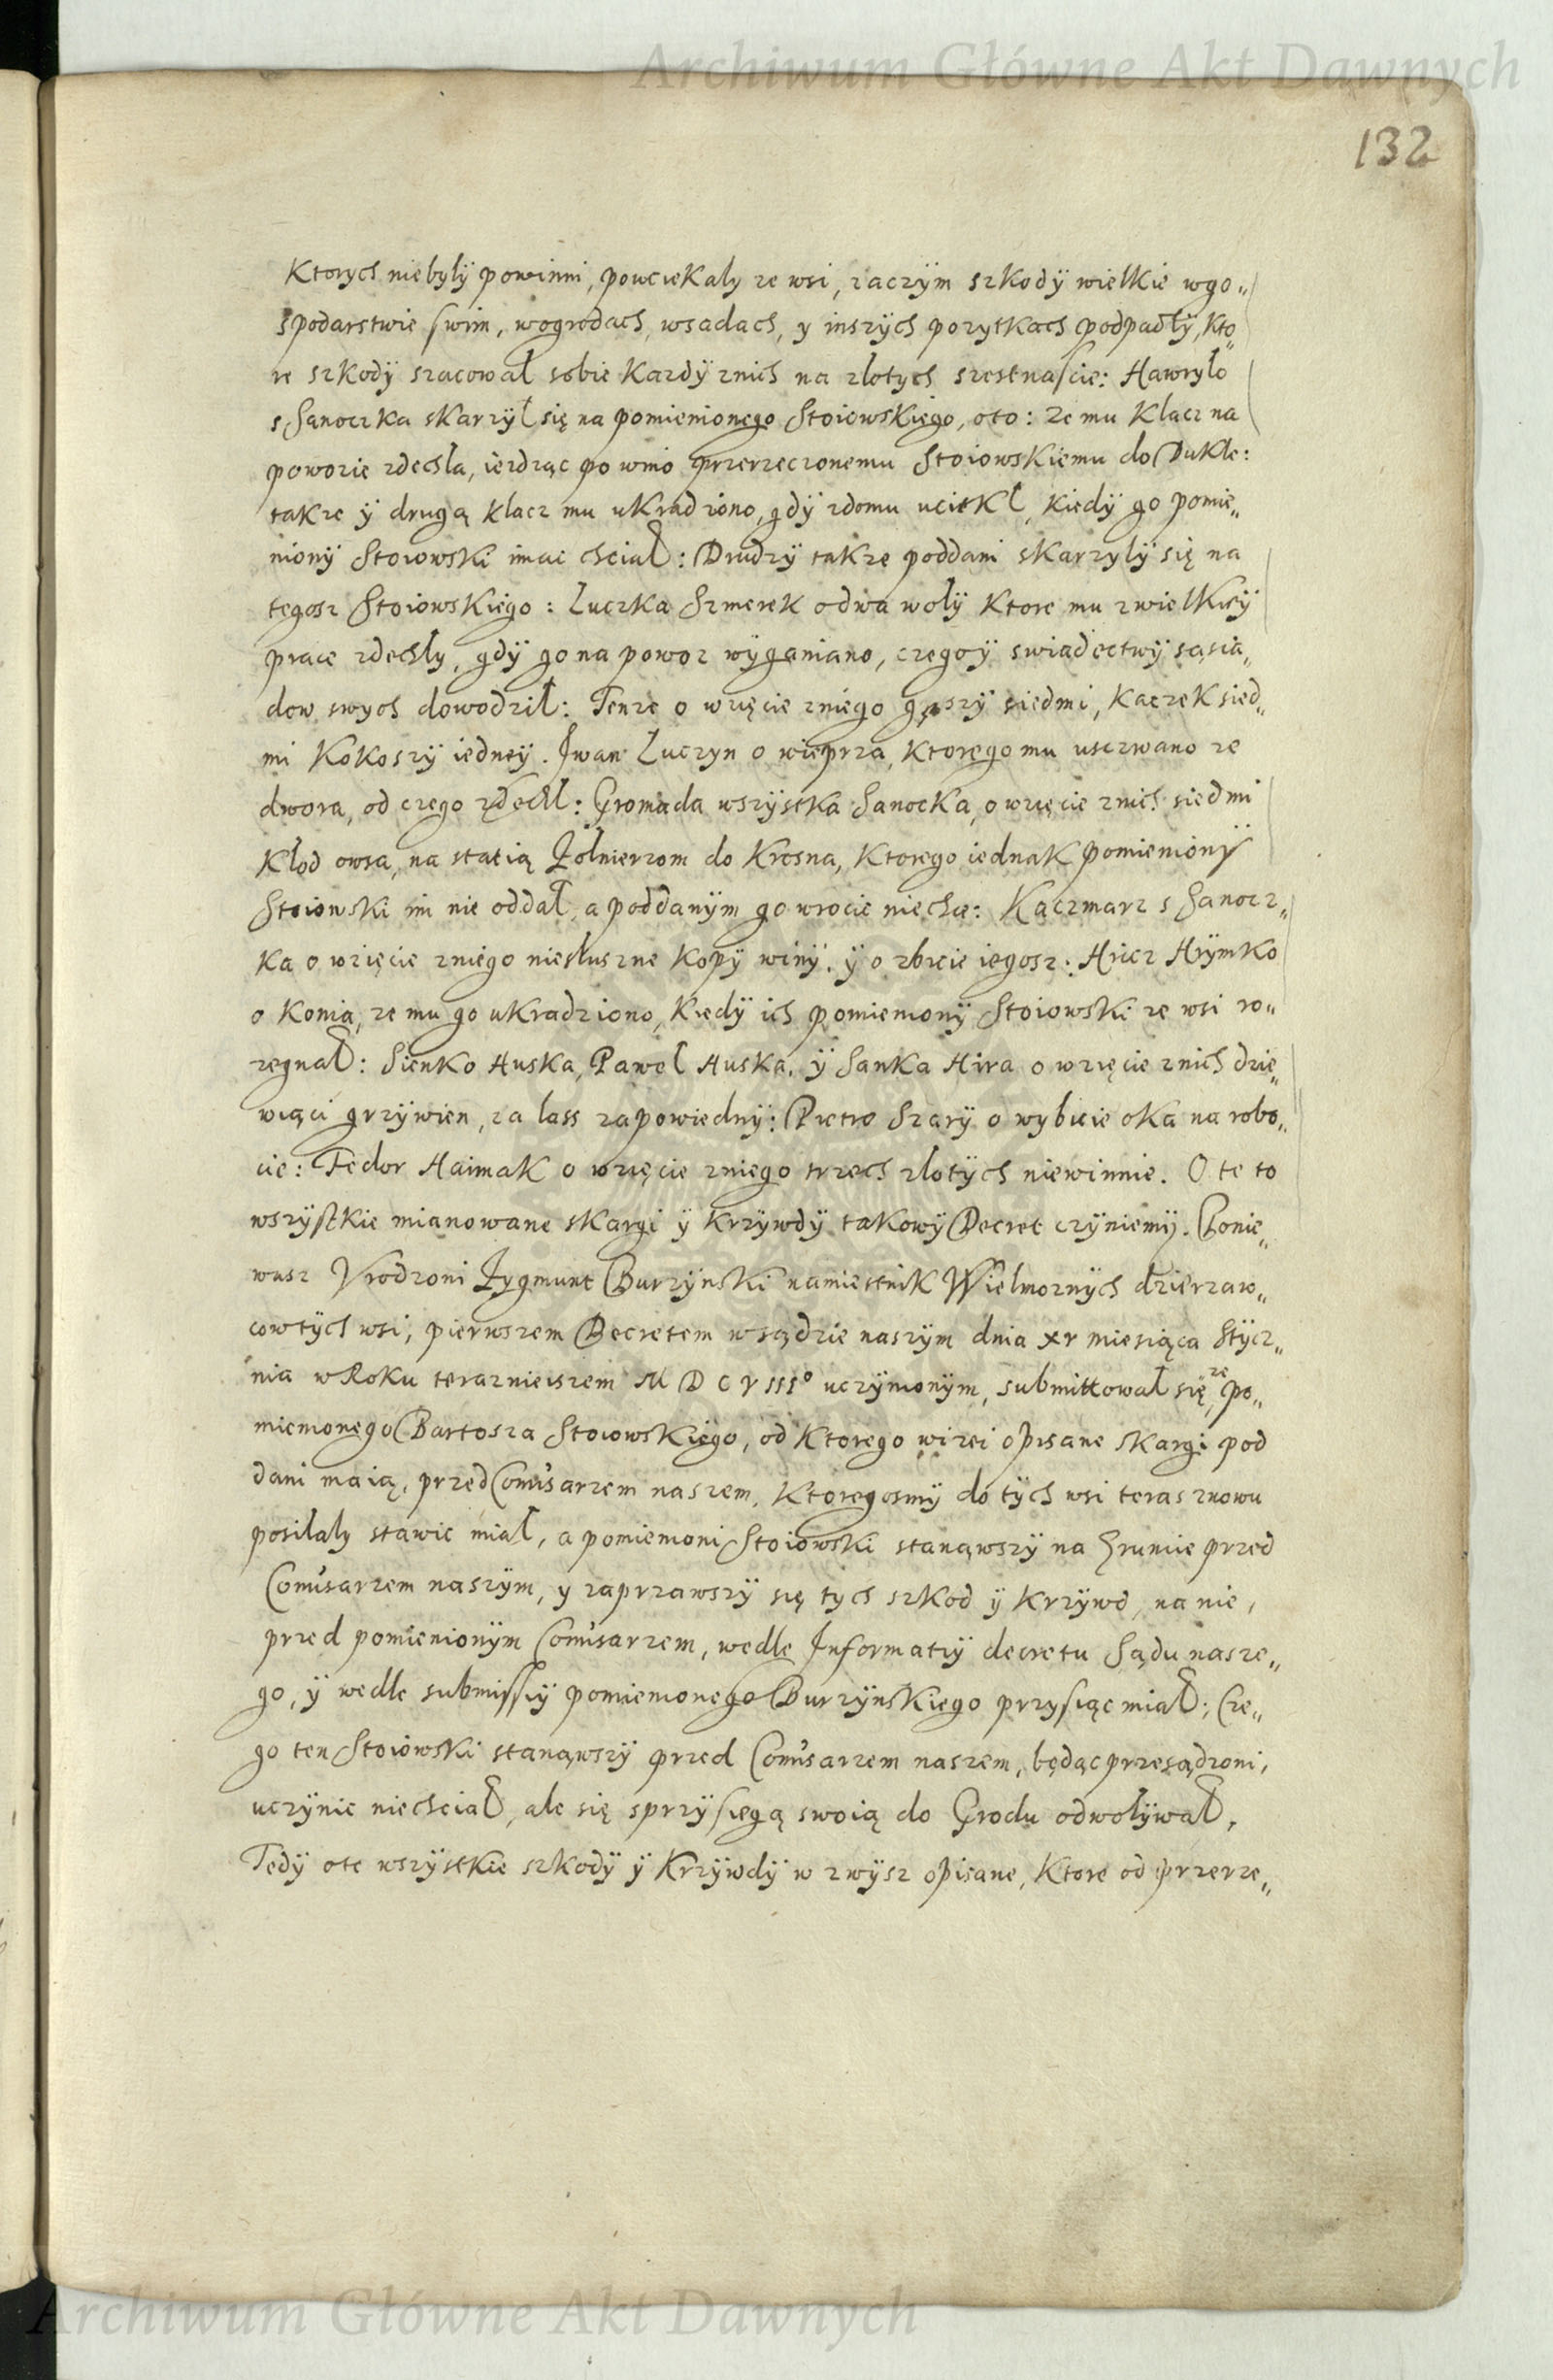 Archiwum Główne Akt Dawnych
132
Ktorych niebyly powinni, powciekaly ze wsi, zaczym szkody wielkie wgo„
spodarstwie swim, wogrodach, wsadach, y inszych pozytkach podpadły, kto„
re szkody szacował sobie kazdy znich na zlotych szesetnascie: Hawryło
s Sanoczka skarzył się na pomienionego Stoiowskiego, oto: ze mu klacz na
powozie zdechla, iezdząc po wino przerzeczonemu Stoiowskiemu do Dukle:
takze y drugą klacz mu ukradziono, gdy zdomu uciekł, kiedy go pomie„
niony Stoiowski imac chciał: Drudzy takze poddani skarzyly się na
tegosz Stoiowskiego: Luczka Szmerek o dwa woly ktore mu zwielkiey
prace zdechly, gdy go na powoz wyganiano, czego y swiadectwy sąsia„
dow swych dowodził: Tenze o wzięcie zniego gęszy siedmi, kaczek sied„
mi kokoszy iedney. Iwan Luczyn o wieprza, ktorego mu usczwano ze
dwora, od czego zdechl: Gromada wszystka Sanocka, o wzięcie znich siedmi
kłod owsa, na statią Zolnierzom do Krosna, ktorego iednak pomieniony
Stoiowski im nie oddał, a poddanym go wrocic niechce: Kaczmarz s Sanocz„
ka o wzięcie zniego niesluszne kopy winy. y o zbicie iegosz: Hricz Hrymko
o konia, ze mu go ukradziono, kiedy ich pomieniony Stoiowski ze wsi ro„
zegnał: Sienko Huska, Paweł Huska, y Sanka Hira o wzięcie znich dzie„
wiąci grzywien, za lass zapowiedny: Pietro Szary o wybicie oka na robo„
cie: Fedor Haimak o wzięcie zniego trzech zlotych niewinnie. O te to
wszystkie mianowane skargi y krzywdy takowy Decret czyniemy. Ponie„
wasz Vrodzoni Zygmunt Burzynski namiestnik Wielmoznych dzierzaw„
cow tych wsi, pierwszem Decretem wsądzie naszym dnia xv miesiąca Stycz„
nia w Roku terazneiszem M D C V IIIº uczynionym, submittował się, ze po„
mienionego Bartosza Stoiowskiego, od ktorego wizei opisane skargi pod
dani maią, przed Comisarzem naszem, ktoregosmy do tych wsi teras znowu
posilaly stawic mial, a pomienioni Stoiowski stanąwszy na gruncie przed
Comisarzem naszym, y zaprzawszy się tych szkod y krzywd, na nie,
przed pomienionym Comisarzem, wedle Informatiy decretu Sądu nasze„
go, y wedle submissiy pomienionego Burzynskiego przysiąc miał: Cze„
go ten Stoiowski stanąwszy przed Comisarzem naszem, będąc przesądzoni,
uczynic niechciał, ale się sprzysiegą swoią do Grodu odwoływał,
Tedy ote wszystkie szkody y krzywdy w zwysz opisane, ktore od przerze„
Archiwum Główne Akt Dawnych